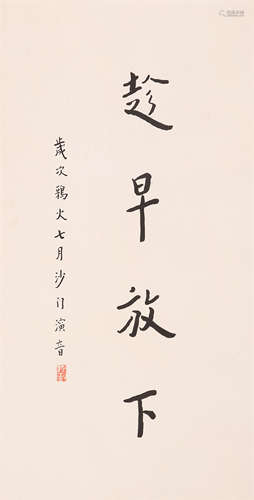 趁早放下
歲次鶉火七月沙门演音